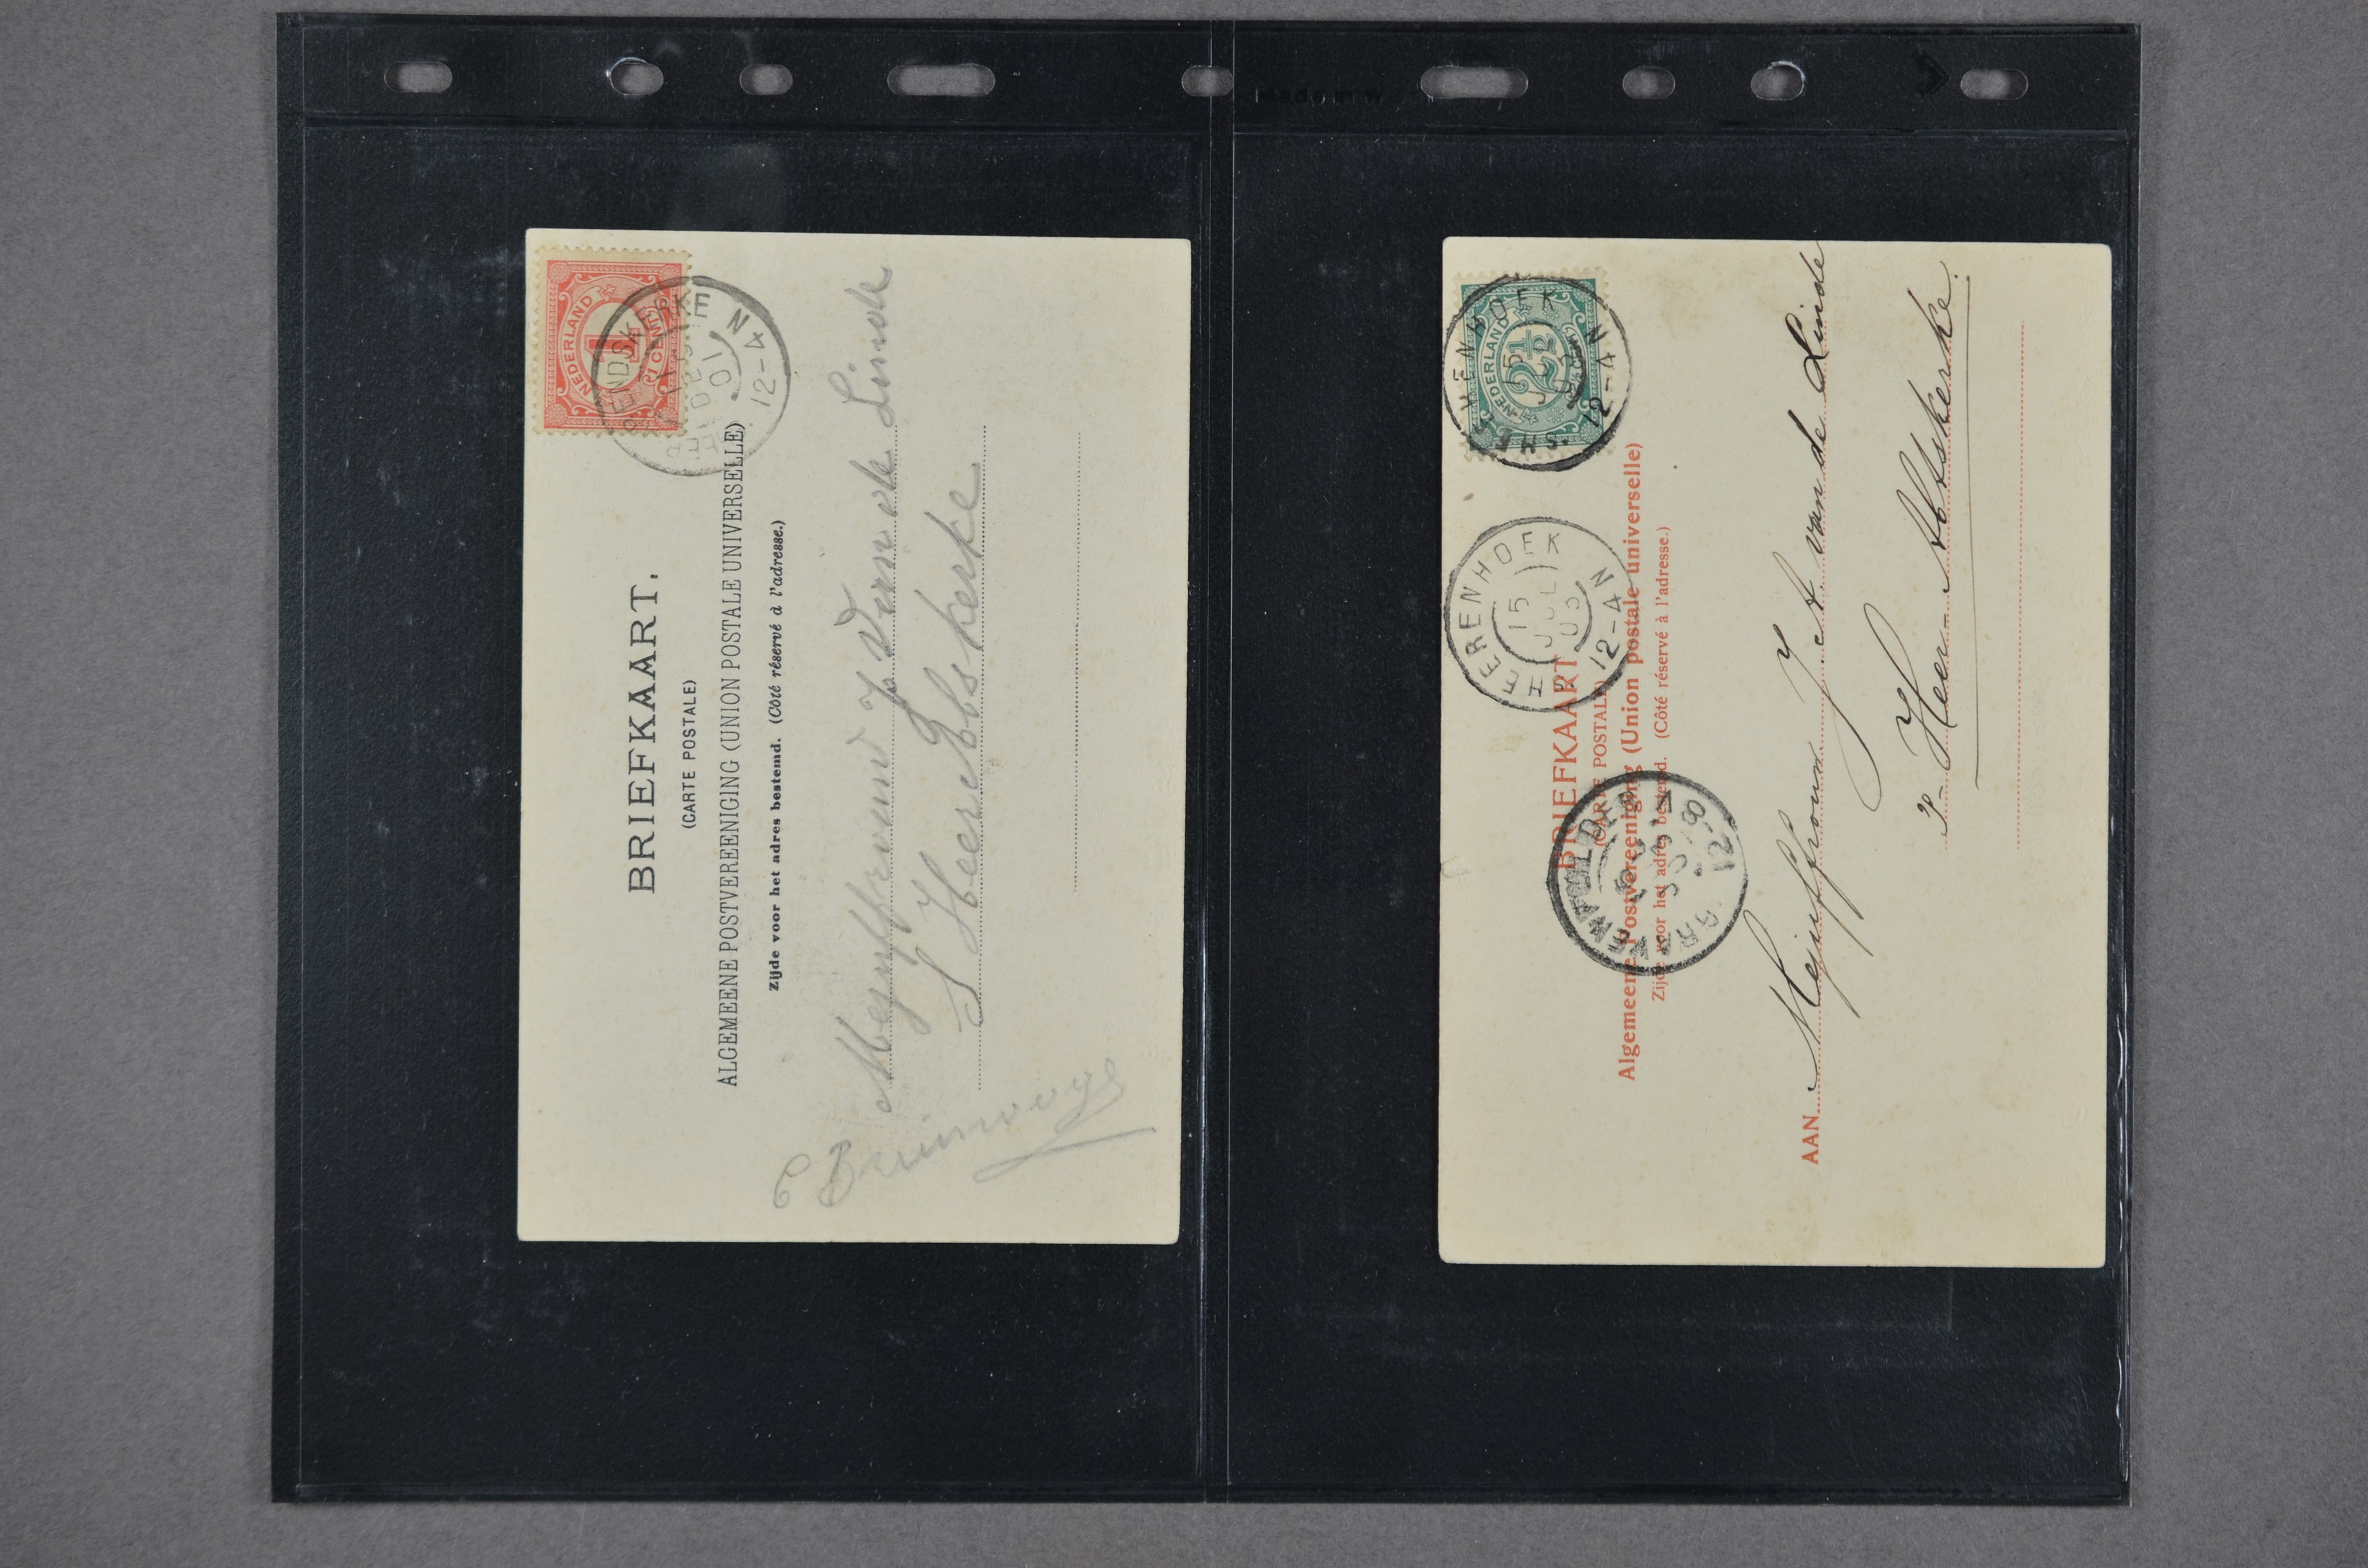 NEDERLAND
1
1 CENT
12-4 N
BRIEFKAART.
(CARTE POSTALE)
ALGEMEENE POSTVEREENIGING (UNION POSTALE UNIVERSELLE)
Zijde voor het adres bestemd. (Côté réservé à l'adresse.)
Linde
S Heer Abtskerke
NEDERLAND
2½
'S HEERENHOEK
15 JUL 03
12-4N
HEERENHOEK
15 JUL 03
12-4N
BRIEFKAART
(CARTE POSTALE)
Algemeene Postvereeniging (Union postale universelle)
Zijde voor het adres bestemd. (Côté réservé à l'adresse.)
'S GRAVENPOLDER
12-8
AAN Mejuffrouw J. A. van de Linde
s- Heer- Abtskerke.